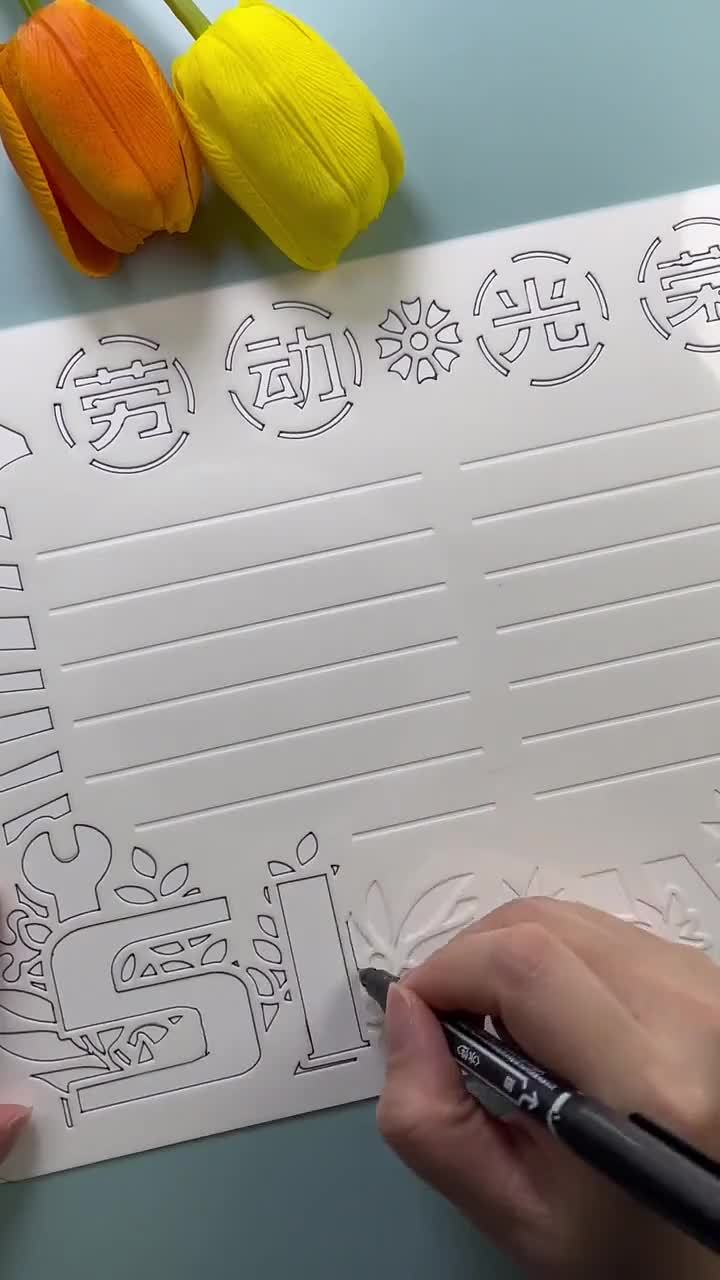 劳动光荣
51